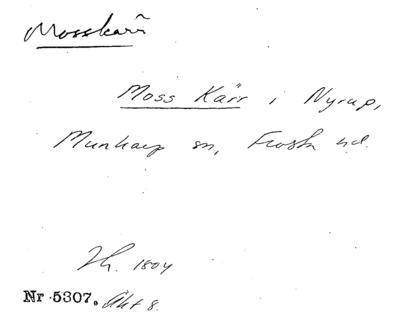 Mosskärr
Moss Kärr i Nyrup,
Munkarp sn, Frosta hd.
1804
Nr 5307. Akt 8.